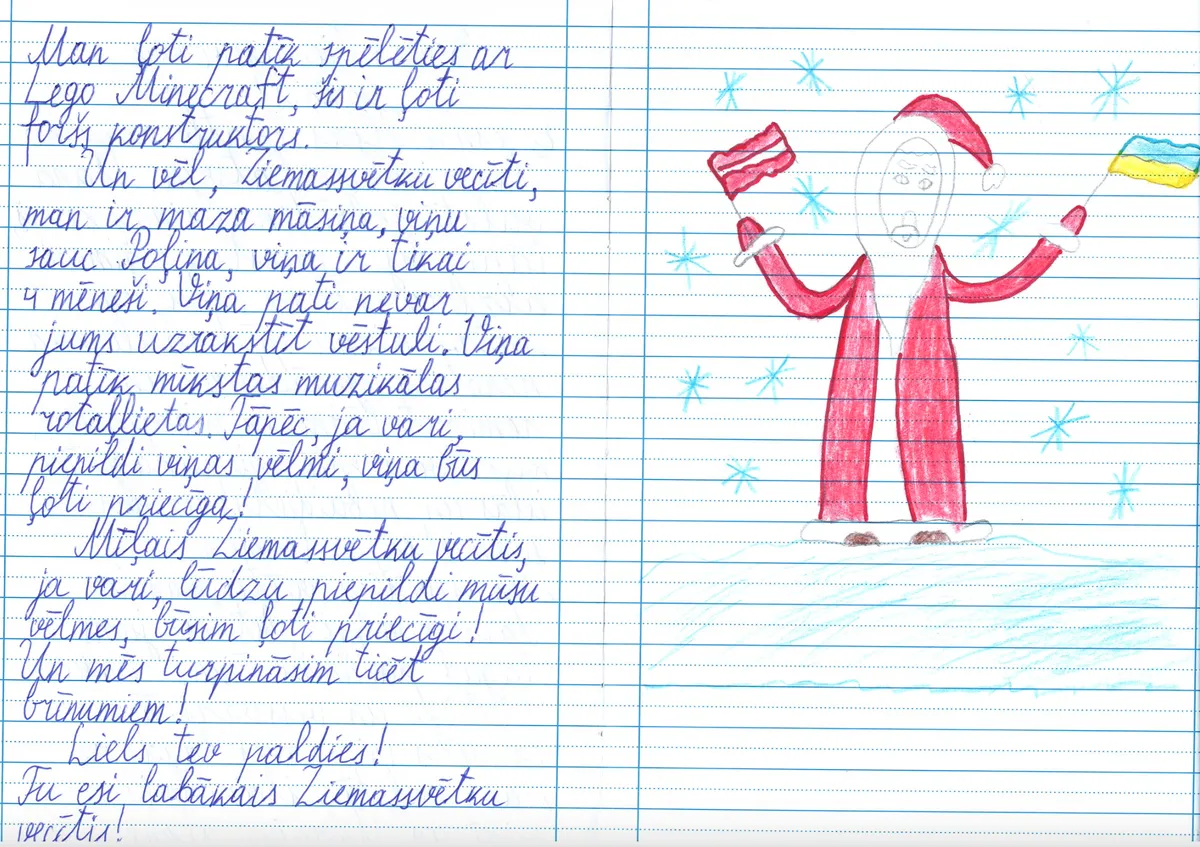 Man ļoti patīk spēlēties ar
Lego Minecraft, šis ir ļoti
foršs konstruktors.
Un vēl, Ziemassvētku vecīti,
man ir maza māsiņa, viņu
sauc Poļina, viņa ir tikai
4 mēneši. Viņa pati nevar
jums uzrakstīt vēstuli. Viņa
patīk mīkstas muzikālas
rotaļlietas. Tāpēc, ja vari,
piepildi viņas vēlmi, viņa būs
ļoti priecīga!
Mīļais Ziemassvētku vecītis,
ja vari, lūdzu piepildi mūsu
vēlmes, būsim ļoti priecīgi!
Un mēs turpināsim ticēt
brīnumiem!
Liels tev paldies!
Tu esi labākais Ziemassvētku
vecītis!